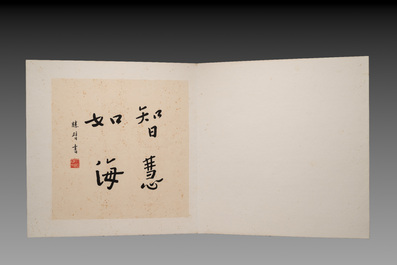 智慧
如海